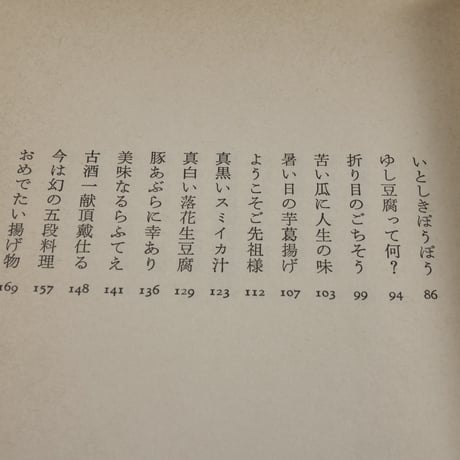 いとしきぼうぼう 86
ゆし豆腐って何？ 94
折り目のごちそう 99
苦い瓜に人生の味 103
暑い日の芋葛揚げ 107
ようこそご先祖様 112
真黒いスミイカ汁 123
真白い落花生豆腐 129
豚あぶらに幸あり 136
美味なるらふてえ 141
古酒一献頂戴仕る 148
今は幻の五段料理 157
おめでたい揚げ物 169